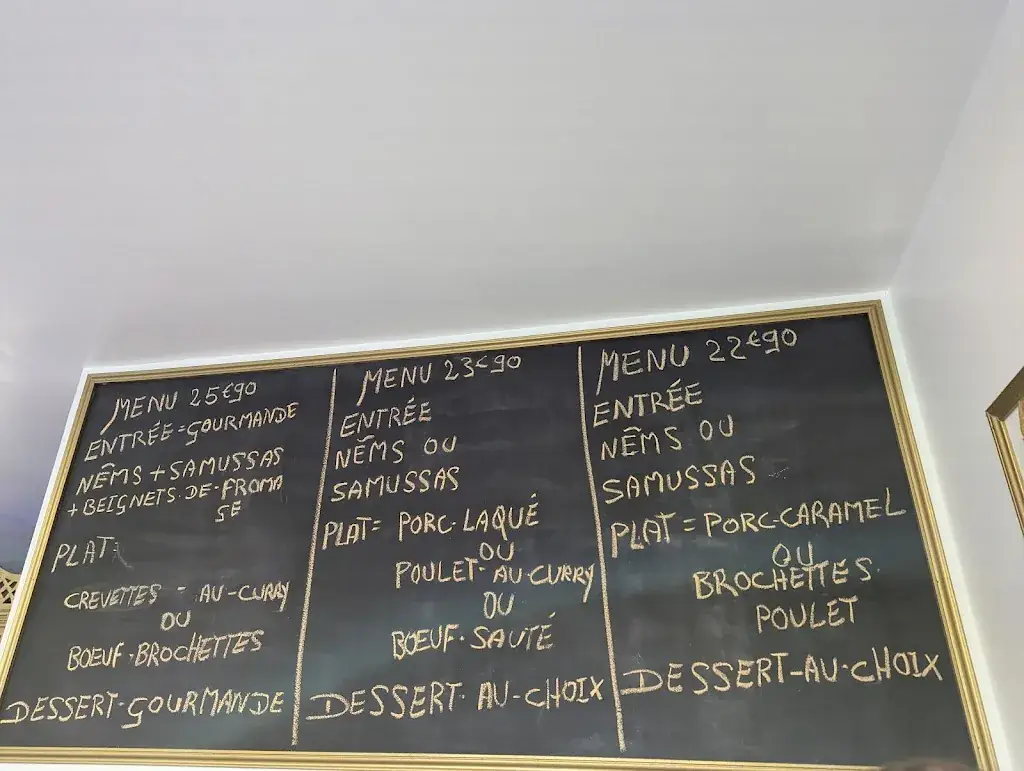 MENU 25€90
ENTRÉE=GOURMANDE
NÊMS + SAMUSSAS
+BEIGNETS-DE-FROMA
GE
PLAT=
CREVETTES - AU-CURRY
OU
BOEUF-BROCHETTES
DESSERT-GOURMANDE
MENU 23€90
ENTRÉE
NÊMS OU
SAMUSSAS
PLAT= PORC-LAQUÉ
OU
POULET-AU-CURRY
OU
BOEUF-SAUTÉ
DESSERT-AU-CHOIX
MENU 22€90
ENTRÉE
NÊMS OU
SAMUSSAS
PLAT=PORC-CARAMEL
OU
BROCHETTES
POULET
DESSERT-AU-CHOIX